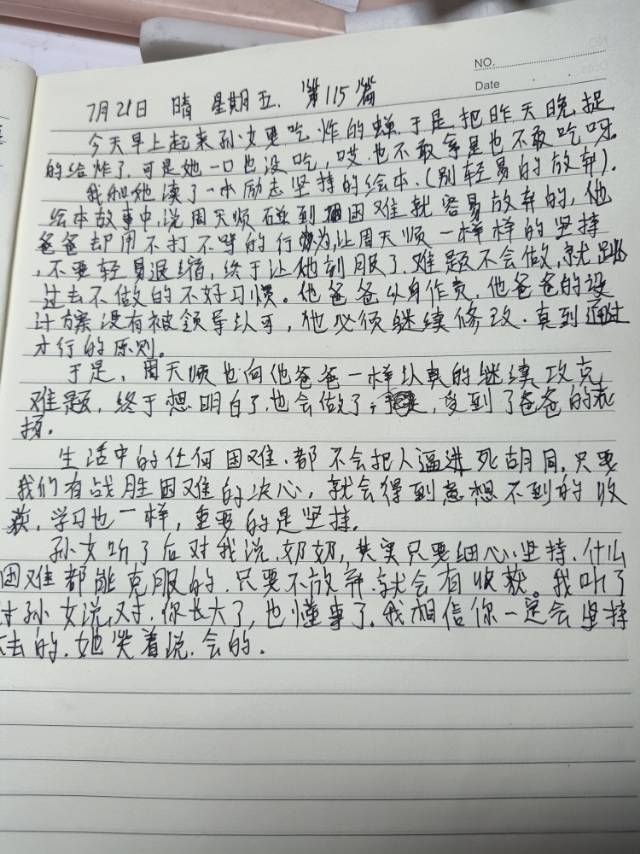 NO.
Date
7月21日 晴 星期五. 第115篇
今天早上起来孙女要吃炸的蝉.于是把昨天晚捉
的给炸了.可是她一口也没吃,哎.也不敢拿是也不敢吃呀.
我和她读了一本励志坚持的绘本.(别轻易的放弃).
绘本故事中,说周天顺碰到困难就容易放弃的,他
爸爸却用不打不骂的行为,让周天顺一样样的坚持
,不要轻易退缩,终于让他刻服了.难题不会做,就跳
过去不做的不好习惯。他爸爸以身作责,他爸爸的设
计方案没有被领导认可,他必须继续修改.直到通过
才行的原则。
于是,周天顺也向他爸爸一样认真的继续攻克
难题,终于想明白了.也会做了,受到了爸爸的表
扬.
生活中的任何困难.都不会把人逼进死胡同,只要
我们有战胜困难的决心,就会得到意想不到的收
获,学习也一样,重要的是坚持.
孙女听了后对我说.奶奶,其实只要细心.坚持.什么
困难都能克服的.只要不放弃.就会有收获。我听了
对孙女说,对.你长大了,也懂事了.我相信你一定会坚持
去的.她笑着说.会的.